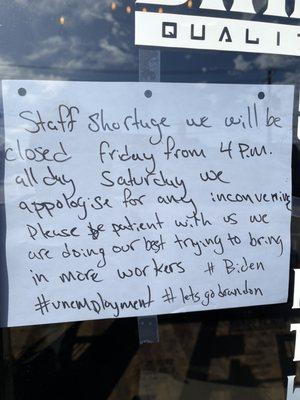 QUALIT
Staff Shortuge we will be
closed Friday from 4 P.M.
all day Saturday we
appologise for any inconvening
Please be patient with us we
are doing our best trying to bring
in more workers # Biden
#unemployment #letsgobrandon